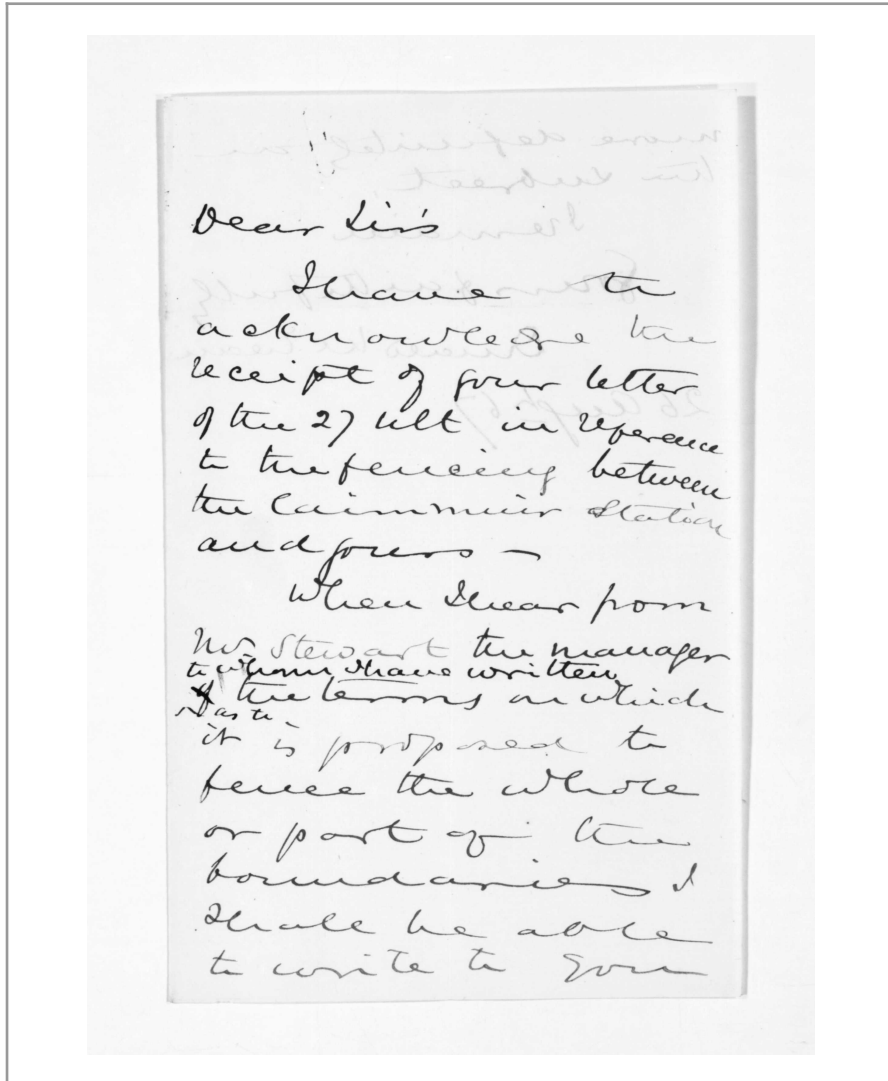 Dear Sir's
I have to
acknowledge the
receipt of your letter
of the 27 ult in reference
to the fencing between
the Cairnmuir Station
and yours —
When I hear from
Mr Stewart the manager
to whom I have written
as to
the terms on which
it is proposed to
fence the whole
or part of the
boundaries I
shall be able
to write to you